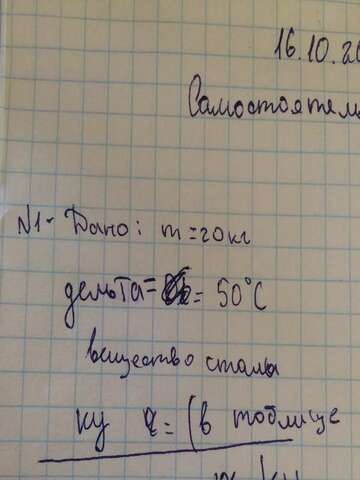 16.10.20
Самостоятель
№1. Дано: m=20кг
дельта = = 50°C
вещество сталы
ку q = (в тоблице